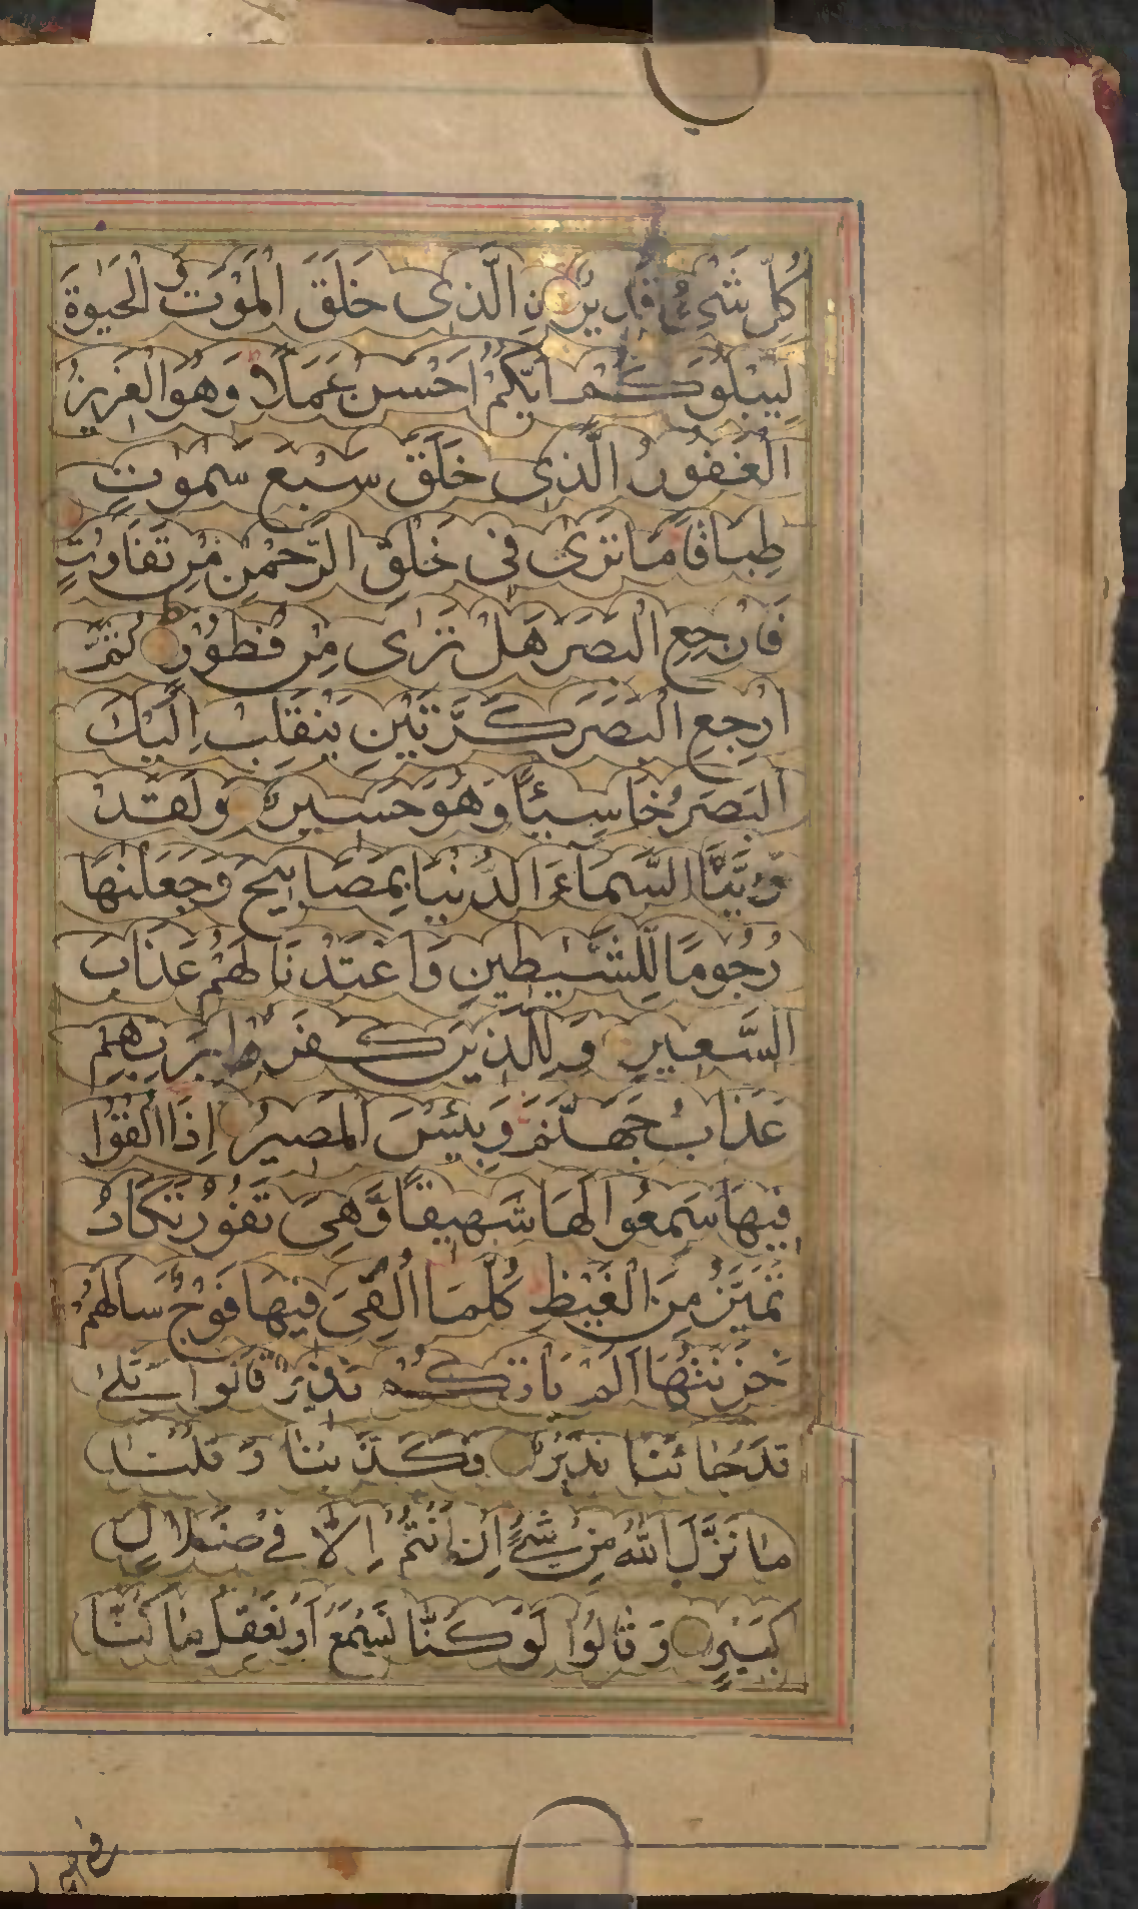 كُلِّ شَيْءٍ قَدِيرٌ نِ الَّذِى خَلَقَ الْمَوْتَ وَ الْحَيٰوةَ
لِيَبْلُوَكُمْ اَيُّكُمْ اَحْسَنُ عَمَلًا وَهُوَ الْعَزِيزُ
الْغَفُورُ الَّذِى خَلَقَ سَبْعَ سَمٰوٰتٍ
طِبَاقًا مَا تَرٰى فِى خَلْقِ الرَّحْمٰنِ مِنْ تَفَاوُتٍ
فَارْجِعِ الْبَصَرَ هَلْ تَرٰى مِنْ فُطُوْرٍ ثُمَّ
ارْجِعِ الْبَصَرَ كَرَّتَيْنِ يَنْقَلِبْ اِلَيْكَ
الْبَصَرُ خَاسِئًا وَهُوَ حَسِيرٌ وَلَقَدْ
زَيَّنَّا السَّمَآءَ الدُّنْيَا بِمَصَابِيحَ وَجَعَلْنٰهَا
رُجُومًا لِلشَّيٰطِينِ وَاَعْتَدْنَا لَهُمْ عَذَابَ
السَّعِيرِ وَلِلَّذِينَ كَفَرُوا بِرَبِّهِمْ
عَذَابُ جَهَنَّمَ وَبِئْسَ الْمَصِيرُ اِذَا اُلْقُوْا
فِيهَا سَمِعُوا لَهَا شَهِيقًا وَّهِىَ تَفُوْرُ تَكَادُ
تَمَيَّزُ مِنَ الْغَيْظِ كُلَّمَا اُلْقِىَ فِيهَا فَوْجٌ سَاَلَهُمْ
خَزَنَتُهَا اَلَمْ يَاْتِكُمْ نَذِيرٌ قَالُوا بَلٰى
قَدْ جَائَنَا نَذِيرٌ فَكَذَّبْنَا وَ قُلْنَا
مَا نَزَّلَ اللّٰهُ مِنْ شَيْءٍ اِنْ اَنْتُمْ اِلَّا فِى ضَلَالٍ
كَبِيْرٍ وَ قَالُوْا لَوْ كُنَّا نَسْمَعُ اَوْ نَعْقِلُ مَا كُنَّا